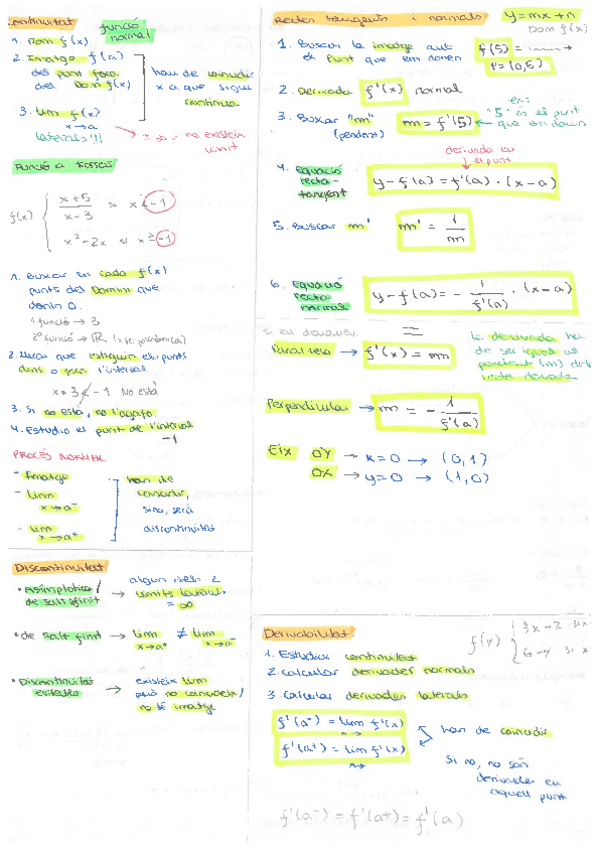 Continuitat
funció normal
1. Dom f(x)
2. Imatge f(a)
del punt fora
del Dom f(x)
3. lim f(x)
x→a
laterals!!!
han de coincidir
x a que sigui
contínua
no existeix
Funció a trossos
f(x) { x+5 / x-3 si x < -1
x²-2x si x ≥ -1
1. Buscar en cada f(x)
punts del Domini que
donin 0.
1ª funció → 3
2ª funció → ℝ (x ser polinòmica)
2. Mirar que estiguin els punts
dins o fora l'interval
No està
3. Si no està, no l'agafo
4. Estudio el punt de l'interval
-1
PROCÉS NORMAL
- Imatge
- lim
x→a⁻
- lim
x→a⁺
han de
coincidir,
sino, serà
discontinuïtat
Discontinuïtat
• Asimptòtica/
de salt infinit → algun dels 2
límits laterals
= ∞
• de salt finit → lim x→a⁺ ≠ lim x→a⁻
• Discontinuïtat
evitable → existeix lim
però no coincideix/
no té imatge
Rectes tangents i normals
y=mx+n
Dom f(x)
1. Buscar la imatge amb
el punt que em donen
f(5) =
P=(0,5)
2. Derivada f'(x) normal
3. Buscar "m"
(pendent)
m = f'(5)
ex:
"5" és el punt
que em donen
derivada en
el punt
4. Equació
recta
tangent
y-f(a) = f'(a) · (x-a)
5. Buscar m'
m' = 1/m
6. Equació
recta
normal
y-f(a) = - 1/f'(a) · (x-a)
si em demanen
Paral·lela → f'(x) = m
la derivada ha
de ser igual al
pendent (m) de la
Perpendicular → m = - 1/f'(a)
Eix OY → x=0 → (0,1)
OX → y=0 → (1,0)
Derivabilitat.
f(x) {
1. Estudiar continuïtat
2. Calcular derivades normals
3. Calcular derivades laterals
f'(a⁻) = lim f'(x)
f'(a⁺) = lim f'(x)
han de coincidir
Si no, no són
derivables en
aquell punt
f'(a⁻) = f'(a⁺) = f'(a)